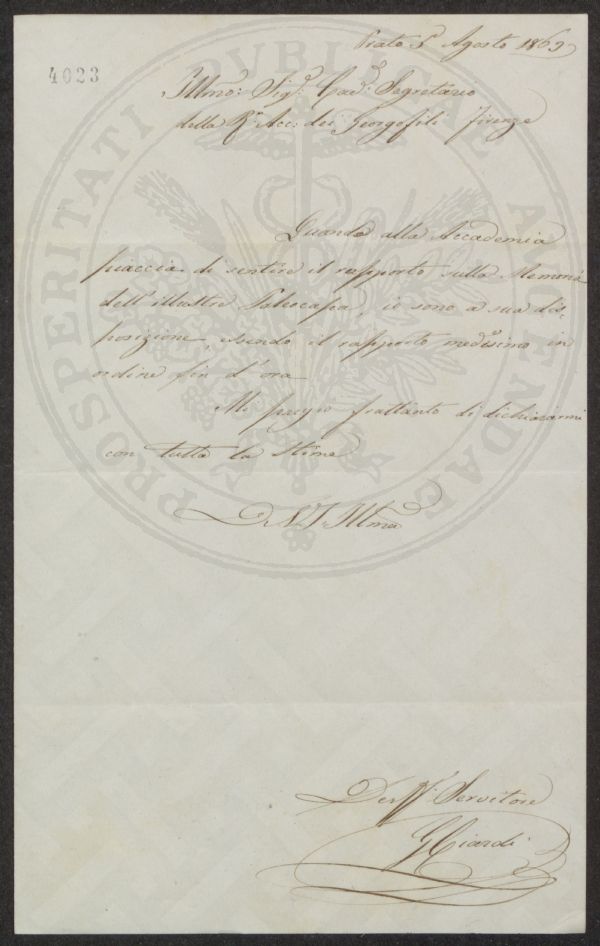 Prato 5 Agosto 1869
4023
Illmo: Sigr: Cavr: Segretario
della Rl Acc: dei Georgofili Firenze
Quando alla Accademia
piaccia di sentire il rapporto sulla Memoria
dell'illustre Paleocapa, io sono a sua dis-
posizione, essendo il rapporto medesimo in
ordine fin d'ora
Mi pregio frattanto di dichiararmi
con tutta la stima
D. V. S. Illma
Servitore
G Ciardi
PROSPERITATI PUBLICAE AUGENDAE